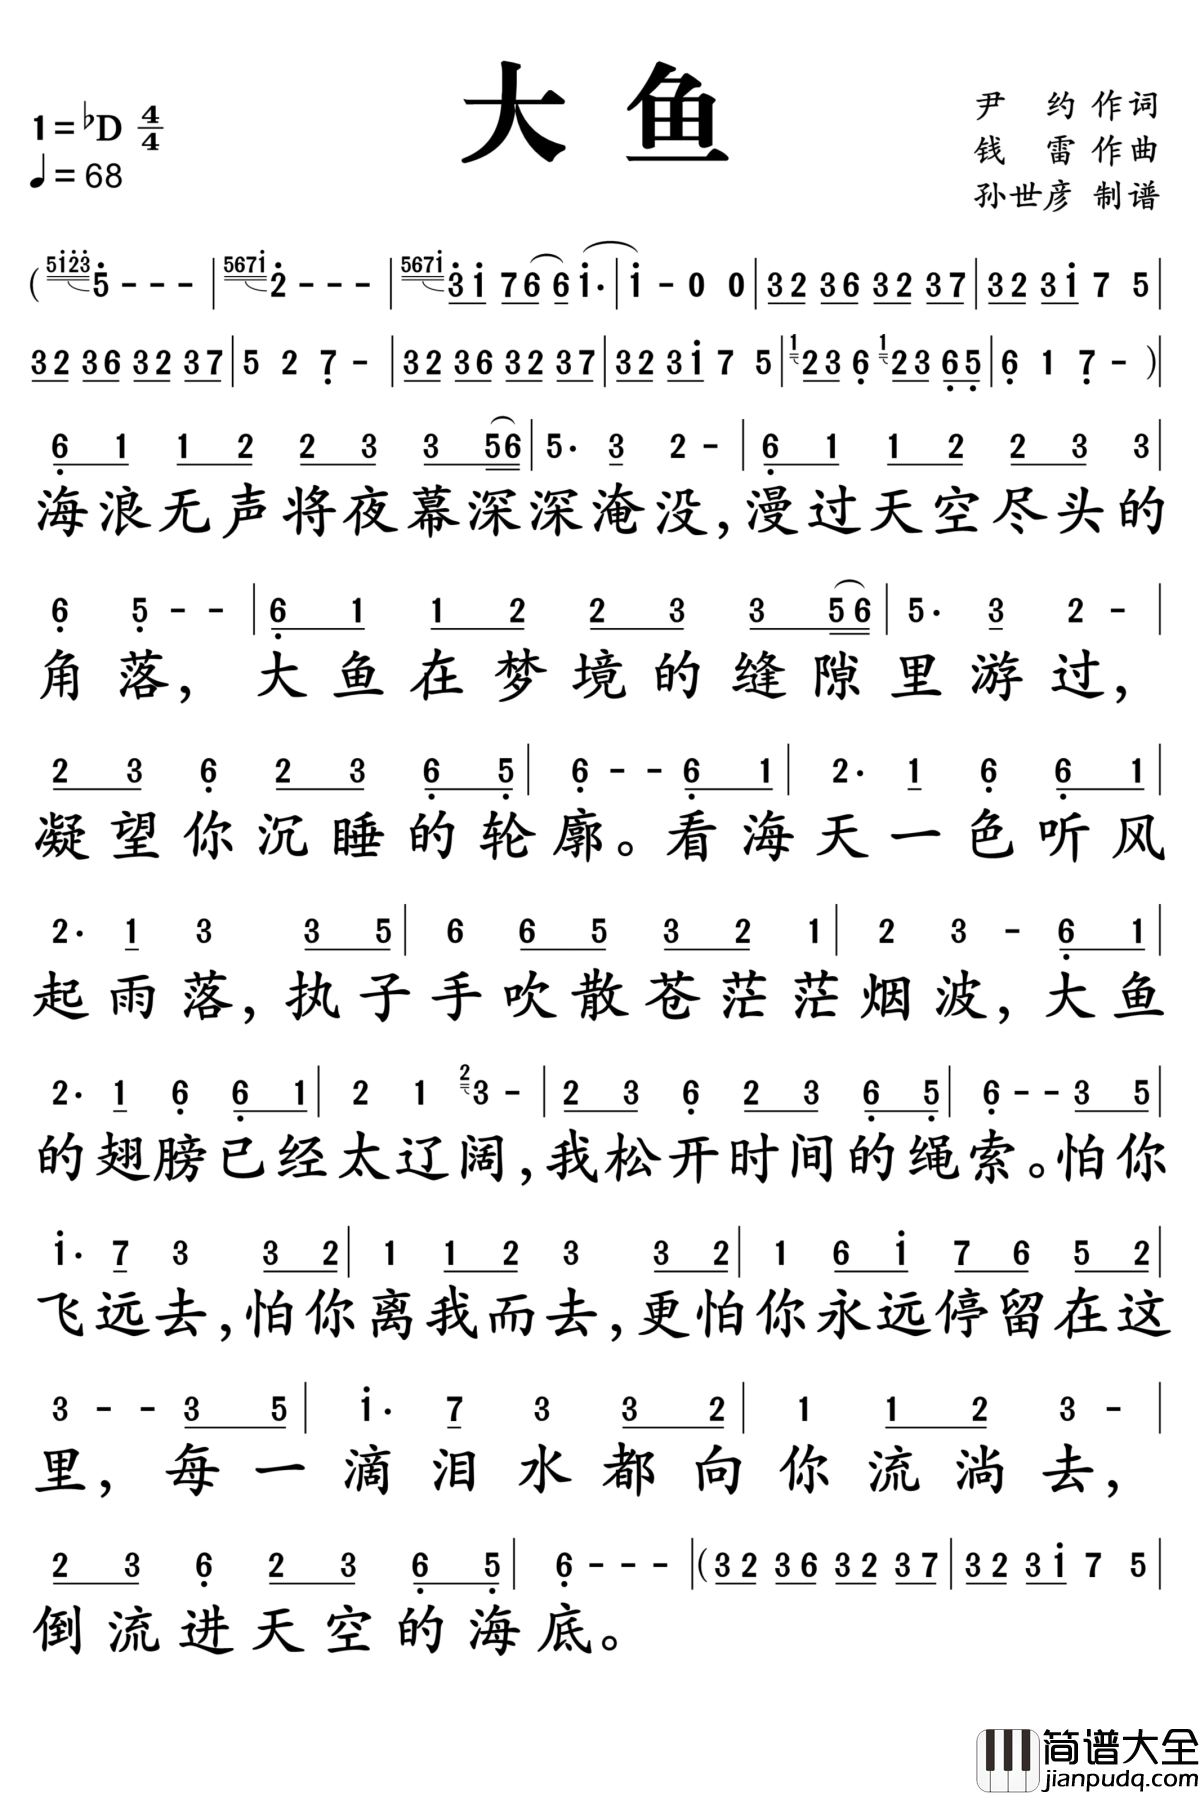 大鱼
1=♭D 4/4
♩=68
尹 约 作词
钱 雷 作曲
孙世彦 制谱
( 5i̇2̇3̇ 5̇ - - - | 567i̇ 2̇ - - - | 567i̇ 3̇ i̇ 7 6 6 i̇· | i̇ - 0 0 | 3 2 3 6 3 2 3 7 | 3 2 3 i̇ 7 5 |
3 2 3 6 3 2 3 7 | 5 2 7̣ - | 3 2 3 6 3 2 3 7 | 3 2 3 i̇ 7 5 | 1 2 3 6̣ 1 2 3 6̣ 5̣ | 6̣ 1 7̣ - ) |
6̣ 1 1 2 2 3 3 5 6 | 5· 3 2 - | 6̣ 1 1 2 2 3 3 |
海浪无声将夜幕深深淹没,漫过天空尽头的
6̣ 5̣ - - | 6̣ 1 1 2 2 3 3 5 6 | 5· 3 2 - |
角落,大鱼在梦境的缝隙里游过,
2 3 6̣ 2 3 6̣ 5̣ | 6̣ - - 6̣ 1 | 2· 1 6̣ 6̣ 1 |
凝望你沉睡的轮廓。看海天一色听风
2· 1 3 3 5 | 6 6 5 3 2 1 | 2 3 - 6̣ 1 |
起雨落,执子手吹散苍茫茫烟波,大鱼
2· 1 6̣ 6̣ 1 | 2 1 2 3 - | 2 3 6̣ 2 3 6̣ 5̣ | 6̣ - - 3 5 |
的翅膀已经太辽阔,我松开时间的绳索。怕你
i̇· 7 3 3 2 | 1 1 2 3 3 2 | 1 6 i̇ 7 6 5 2 |
飞远去,怕你离我而去,更怕你永远停留在这
3 - - 3 5 | i̇· 7 3 3 2 | 1 1 2 3 - |
里,每一滴泪水都向你流淌去,
2 3 6̣ 2 3 6̣ 5̣ | 6̣ - - - | ( 3 2 3 6 3 2 3 7 | 3 2 3 i̇ 7 5 |
倒流进天空的海底。
简谱大全
jianpudq.com